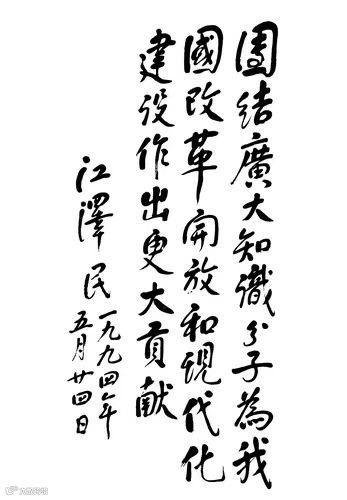 團結廣大知識分子為我
國改革開放和現代化
建設作出更大貢献
江澤民
一九九四年
五月廿四日